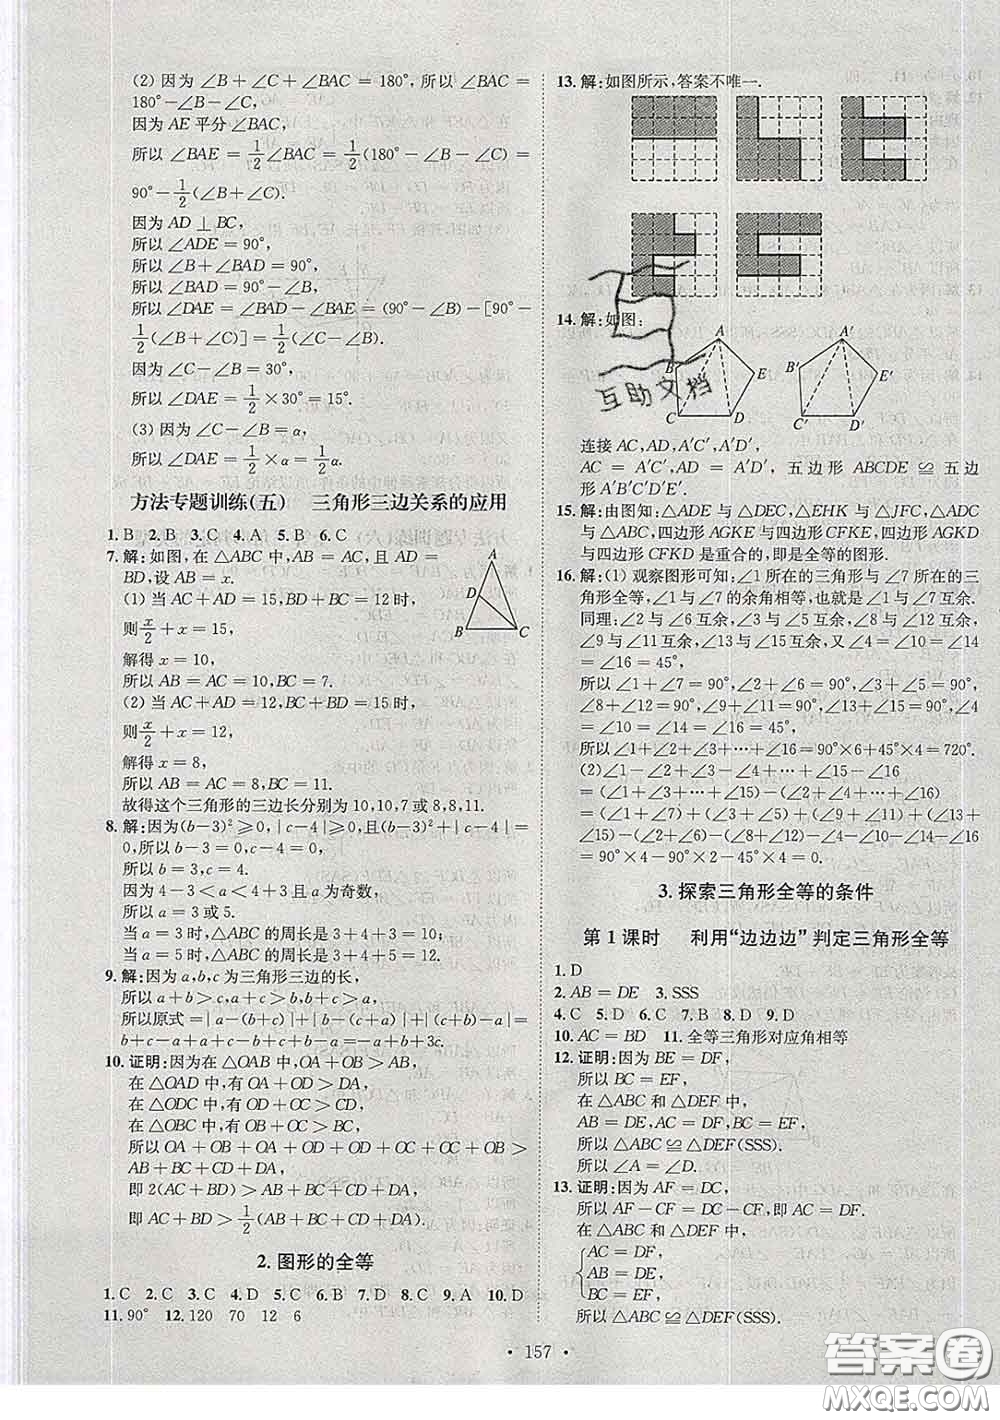 (2) 因为 ∠B+∠C+∠BAC=180°, 所以 ∠BAC=
180°-∠B-∠C,
因为 AE 平分 ∠BAC,
所以 ∠BAE=1/2∠BAC=1/2(180°-∠B-∠C)=
90°-1/2(∠B+∠C).
因为 AD⊥BC,
所以 ∠ADE=90°,
所以 ∠B+∠BAD=90°,
所以 ∠BAD=90°-∠B,
所以 ∠DAE=∠BAD-∠BAE=(90°-∠B)-[90°-
1/2(∠B+∠C)]=1/2(∠C-∠B).
因为 ∠C-∠B=30°,
所以 ∠DAE=1/2×30°=15°.
(3) 因为 ∠C-∠B=α,
所以 ∠DAE=1/2×α=1/2α.
方法专题训练(五) 三角形三边关系的应用
1.B 2.B 3.C 4.A 5.B 6.C
7.解:如图,在△ABC中,AB=AC,且 AD=
BD,设 AB=x.
(1) 当 AC+AD=15,BD+BC=12时,
则x/2+x=15,
解得 x=10,
所以 AB=AC=10,BC=7.
(2) 当 AC+AD=12,BC+BD=15时,
则x/2+x=12,
解得 x=8,
所以 AB=AC=8,BC=11.
故得这个三角形的三边长分别为 10,10,7 或 8,8,11.
A
D
B
C
8.解:因为(b-3)²≥0,|c-4|≥0,且(b-3)²+|c-4|=
0,所以 b-3=0,c-4=0,
所以 b=3,c=4.
因为 4-3<a<4+3 且 a 为奇数,
所以 a=3 或 5.
当 a=3 时,△ABC 的周长是 3+4+3=10;
当 a=5 时,△ABC 的周长是 3+4+5=12.
9.解:因为 a,b,c 为三角形三边的长,
所以 a+b>c,a+c>b,b+c>a,
所以原式=|a-(b+c)|+|b-(c+a)|+|(c+b)-a|=
b+c-a+a+c-b+c+b-a=-a+b+3c.
10.证明:因为在 △OAB 中,OA+OB>AB,
在 △OAD 中,有 OA+OD>DA,
在 △ODC 中,有 OD+OC>CD,
在 △OBC 中,有 OB+OC>BC,
所以 OA+OB+OA+OD+OD+OC+OC+OB>
AB+BC+CD+DA,
即 2(AC+BD)>AB+BC+CD+DA,
即 AC+BD>1/2(AB+BC+CD+DA).
2.图形的全等
1.C 2.C 3.C 4.D 5.B 6.D 7.B 8.C 9.A 10.D
11.90° 12.120 70 12 6
13.解:如图所示,答案不唯一.
14.解:如图:
A
B
E
C
D
A′
B′
E′
C′
D′
互助文档
连接 AC,AD,A′C′,A′D′,
AC=A′C′,AD=A′D′, 五边形 ABCDE≌五边
形 A′B′C′D′E′.
15.解:由图知:△ADE 与△DEC,△EHK 与△JFC,△ADC
与△ABC,四边形 AGKE 与四边形 CFKE,四边形 AGKD
与四边形 CFKD 是重合的,即是全等的图形.
16.解:(1) 观察图形可知:∠1所在的三角形与∠7所在的三
角形全等,∠1与∠7的余角相等,也就是∠1与∠7互余.
同理:∠2与∠6互余,∠3与∠5互余,∠8与∠12互余,
∠9与∠11互余,∠15与∠13互余,∠4=∠10=∠14
=∠16=45°,
所以∠1+∠7=90°,∠2+∠6=90°,∠3+∠5=90°,
∠8+∠12=90°,∠9+∠11=90°,∠13+∠15=90°,∠4=
∠10=∠14=∠16=45°,
所以∠1+∠2+∠3+…+∠16=90°×6+45°×4=720°.
(2)∠1-∠2+∠3-∠4+…+∠15-∠16
=(∠1+∠3+∠5+…+∠15)-(∠2+∠4+∠6+…+
∠16)
=(∠1+∠7)+(∠3+∠5)+(∠9+∠11)+(∠13+
∠15)-(∠8+∠12)-(∠2+∠6)-(∠4+∠10+∠14+
∠16)=90°×4-90°×2-45°×4=0.
3.探索三角形全等的条件
第1课时 利用“边边边”判定三角形全等
1.D
2.AB=DE 3.SSS
4.C 5.D 6.C 7.B 8.D 9.D
10.AC=BD 11.全等三角形对应角相等
12.证明:因为 BE=DF,
所以 BC=EF,
在 △ABC 和 △DEF 中,
AB=DE,AC=DF,BC=EF,
所以 △ABC≌△DEF(SSS).
所以 ∠A=∠D.
13.证明:因为 AF=DC,
所以 AF-CF=DC-CF,即 AC=DF.
在 △ABC 和 △DEF 中,
AC=DF,
AB=DE,
BC=EF,
所以 △ABC≌△DEF(SSS).
·157·
答案圈
MXQE.COM